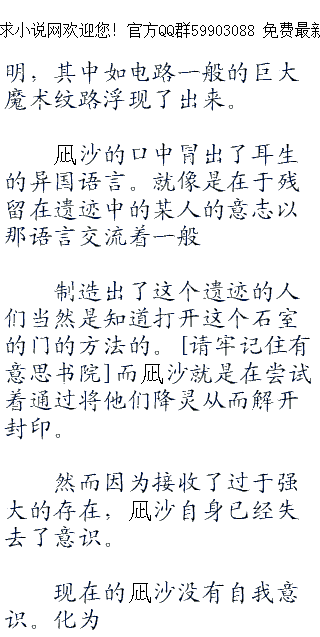 求小说网欢迎您！官方QQ群59903088 免费最新
明，其中如电路一般的巨大
魔术纹路浮现了出来。
凪沙的口中冒出了耳生
的异国语言。就像是在于残
留在遗迹中的某人的意志以
那语言交流着一般
制造出了这个遗迹的人
们当然是知道打开这个石室
的门的方法的。[请牢记住有
意思书院]而凪沙就是在尝试
着通过将他们降灵从而解开
封印。
然而因为接收了过于强
大的存在，凪沙自身已经失
去了意识。
现在的凪沙没有自我意
识。化为